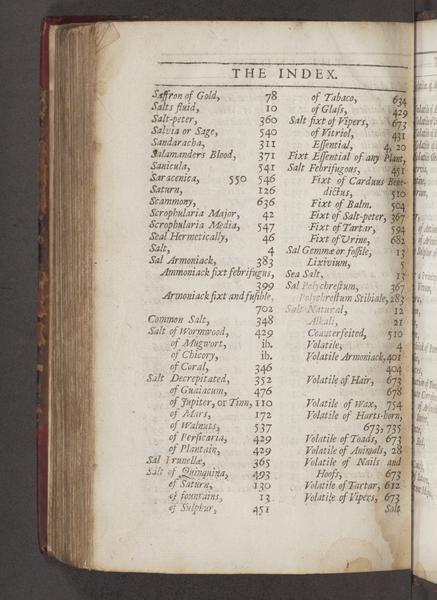 THE INDEX.
Saffron of Gold, 78
Salts fluid, 10
Salt-peter, 360
Salvia or Sage, 540
Sandaracha, 311
Salamanders Blood, 371
Sanicula, 541
Saracenica, 550 546
Saturn, 126
Scammony, 636
Scrophularia Major, 42
Scrophularia Media, 547
Seal Hermetically, 46
Salt, 4
Sal Armoniack, 383
Ammoniack fixt febrifugus,
399
Armoniack fixt and fusible,
702
Common Salt, 348
Salt of Wormwood, 429
of Mugwort, ib.
of Chicory, ib.
of Coral, 346
Salt Decrepitated, 352
of Guaiacum, 476
of Jupiter, or Tinn, 110
of Mars, 172
of Walnuts, 537
of Persicaria, 429
of Plantain, 429
Sal Prunellæ, 365
Salt of Quinquina, 493
of Saturn, 130
of fountains, 13
of Sulphur, 451
of Tabaco, 634
of Glass, 429
Salt fixt of Vipers, 673
of Vitriol, 431
Essential, 4, 20
Fixt Essential of any Plant,
Salt Febrifugous, 451
Fixt of Carduus Bene-
dictus, 510
Fixt of Balm. 504
Fixt of Salt-peter, 367
Fixt of Tartar, 594
Fixt of Urine, 682
Sal Gemmæ or fossile, 13
Lixivium, 5
Sea Salt, 13
Sal Polychrestum, 367
Polychrestum Stibiale, 283
Salt Natural, 12
Alkali, 21
Counterfeited, 510
Volatile, 4
Volatile Armoniack, 401
404
Volatile of Hair, 673
678
Volatile of Wax, 754
Volatile of Harts-horn,
673, 735
Volatile of Toads, 673
Volatile of Animals, 28
Volatile of Nails and
Hoofs, 673
Volatile of Tartar, 612
Volatile of Vipers, 673
Salt